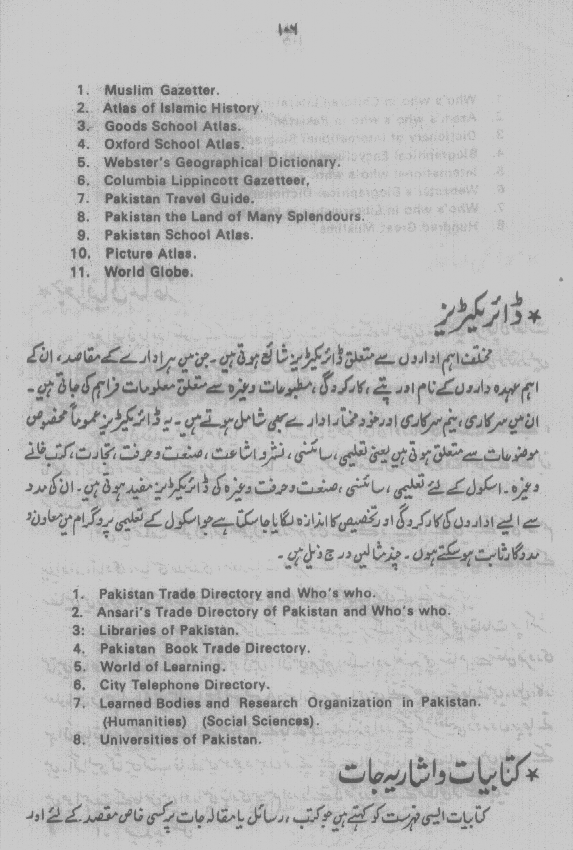 ۱۰۶
1. Muslim Gazetter.
2. Atlas of Islamic History.
3. Goods School Atlas.
4. Oxford School Atlas.
5. Webster's Geographical Dictionary.
6. Columbia Lippincott Gazetteer,
7. Pakistan Travel Guide.
8. Pakistan the Land of Many Splendours.
9. Pakistan School Atlas.
10. Picture Atlas.
11. World Globe.
* ڈائریکٹریز
مختلف اہم اداروں سے متعلق ڈائریکٹریز شائع ہوتی ہیں۔ جن میں ہر ادارے کے مقاصد، ان کے
اہم عہدہ داروں کے نام اور پتے، کارکردگی، مطبوعات وغیرہ سے متعلق معلومات فراہم کی جاتی ہیں۔
ان میں سرکاری، نیم سرکاری اور خود مختار ادارے بھی شامل ہوتے ہیں۔ یہ ڈائریکٹریز عموماً مخصوص
موضوعات سے متعلق ہوتی ہیں یعنی تعلیمی، سائنسی، نشر و اشاعت، صنعت و حرفت، تجارت، کتب خانے
وغیرہ۔ اسکول کے لئے تعلیمی، سائنسی، صنعت و حرفت وغیرہ کی ڈائریکٹریز مفید ہوتی ہیں۔ ان کی مدد
سے ایسے اداروں کی کارکردگی اور تخصیص کا اندازہ لگایا جا سکتا ہے جو اسکول کے تعلیمی پروگرام میں معاون و
مددگار ثابت ہو سکتے ہوں۔ چند مثالیں درج ذیل ہیں۔
1. Pakistan Trade Directory and Who's who.
2. Ansari's Trade Directory of Pakistan and Who's who.
3: Libraries of Pakistan.
4. Pakistan Book Trade Directory.
5. World of Learning.
6. City Telephone Directory.
7. Learned Bodies and Research Organization in Pakistan.
(Humanities) (Social Sciences).
8. Universities of Pakistan.
* کتابیات و اشاریہ جات
کتابیات ایسی فہرست کو کہتے ہیں جو کتب، رسائل یا مقالہ جات پر کسی خاص مقصد کے لئے اور